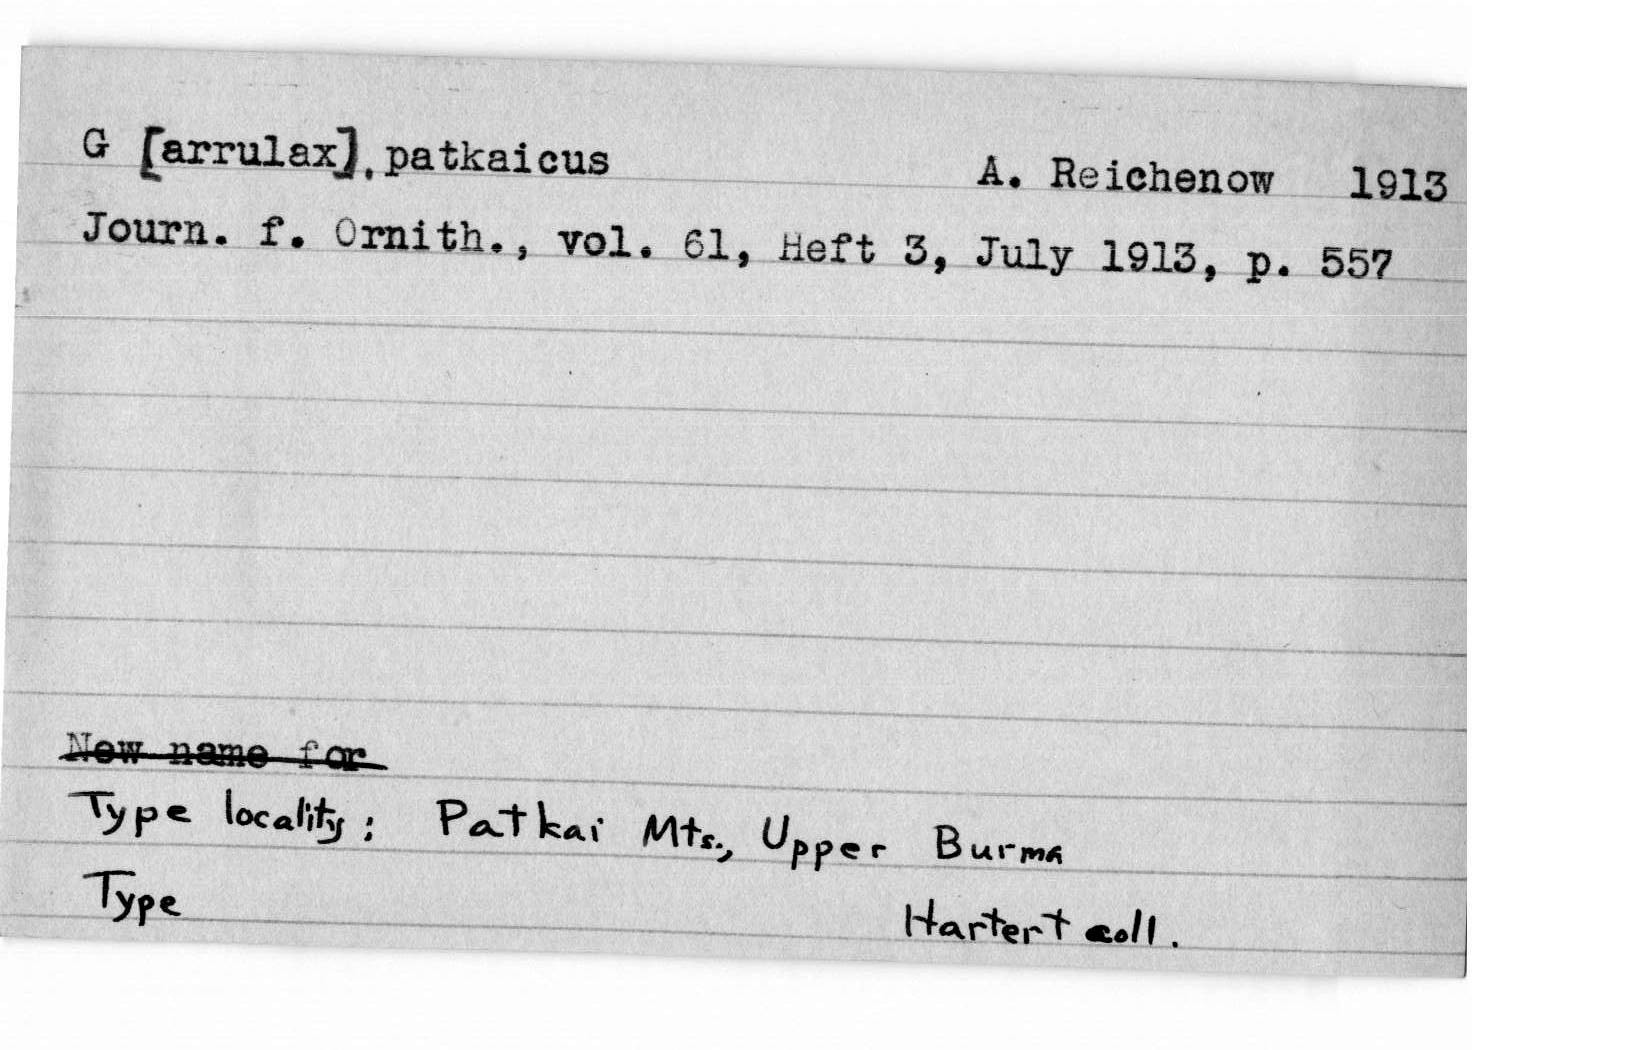 G [arrulax]. patkaicus A. Reichenow 1913
Journ. f. Ornith., vol. 61, Heft 3, July 1913, p. 557
New name for
Type locality: Patkai Mts., Upper Burma
Type Hartert coll.